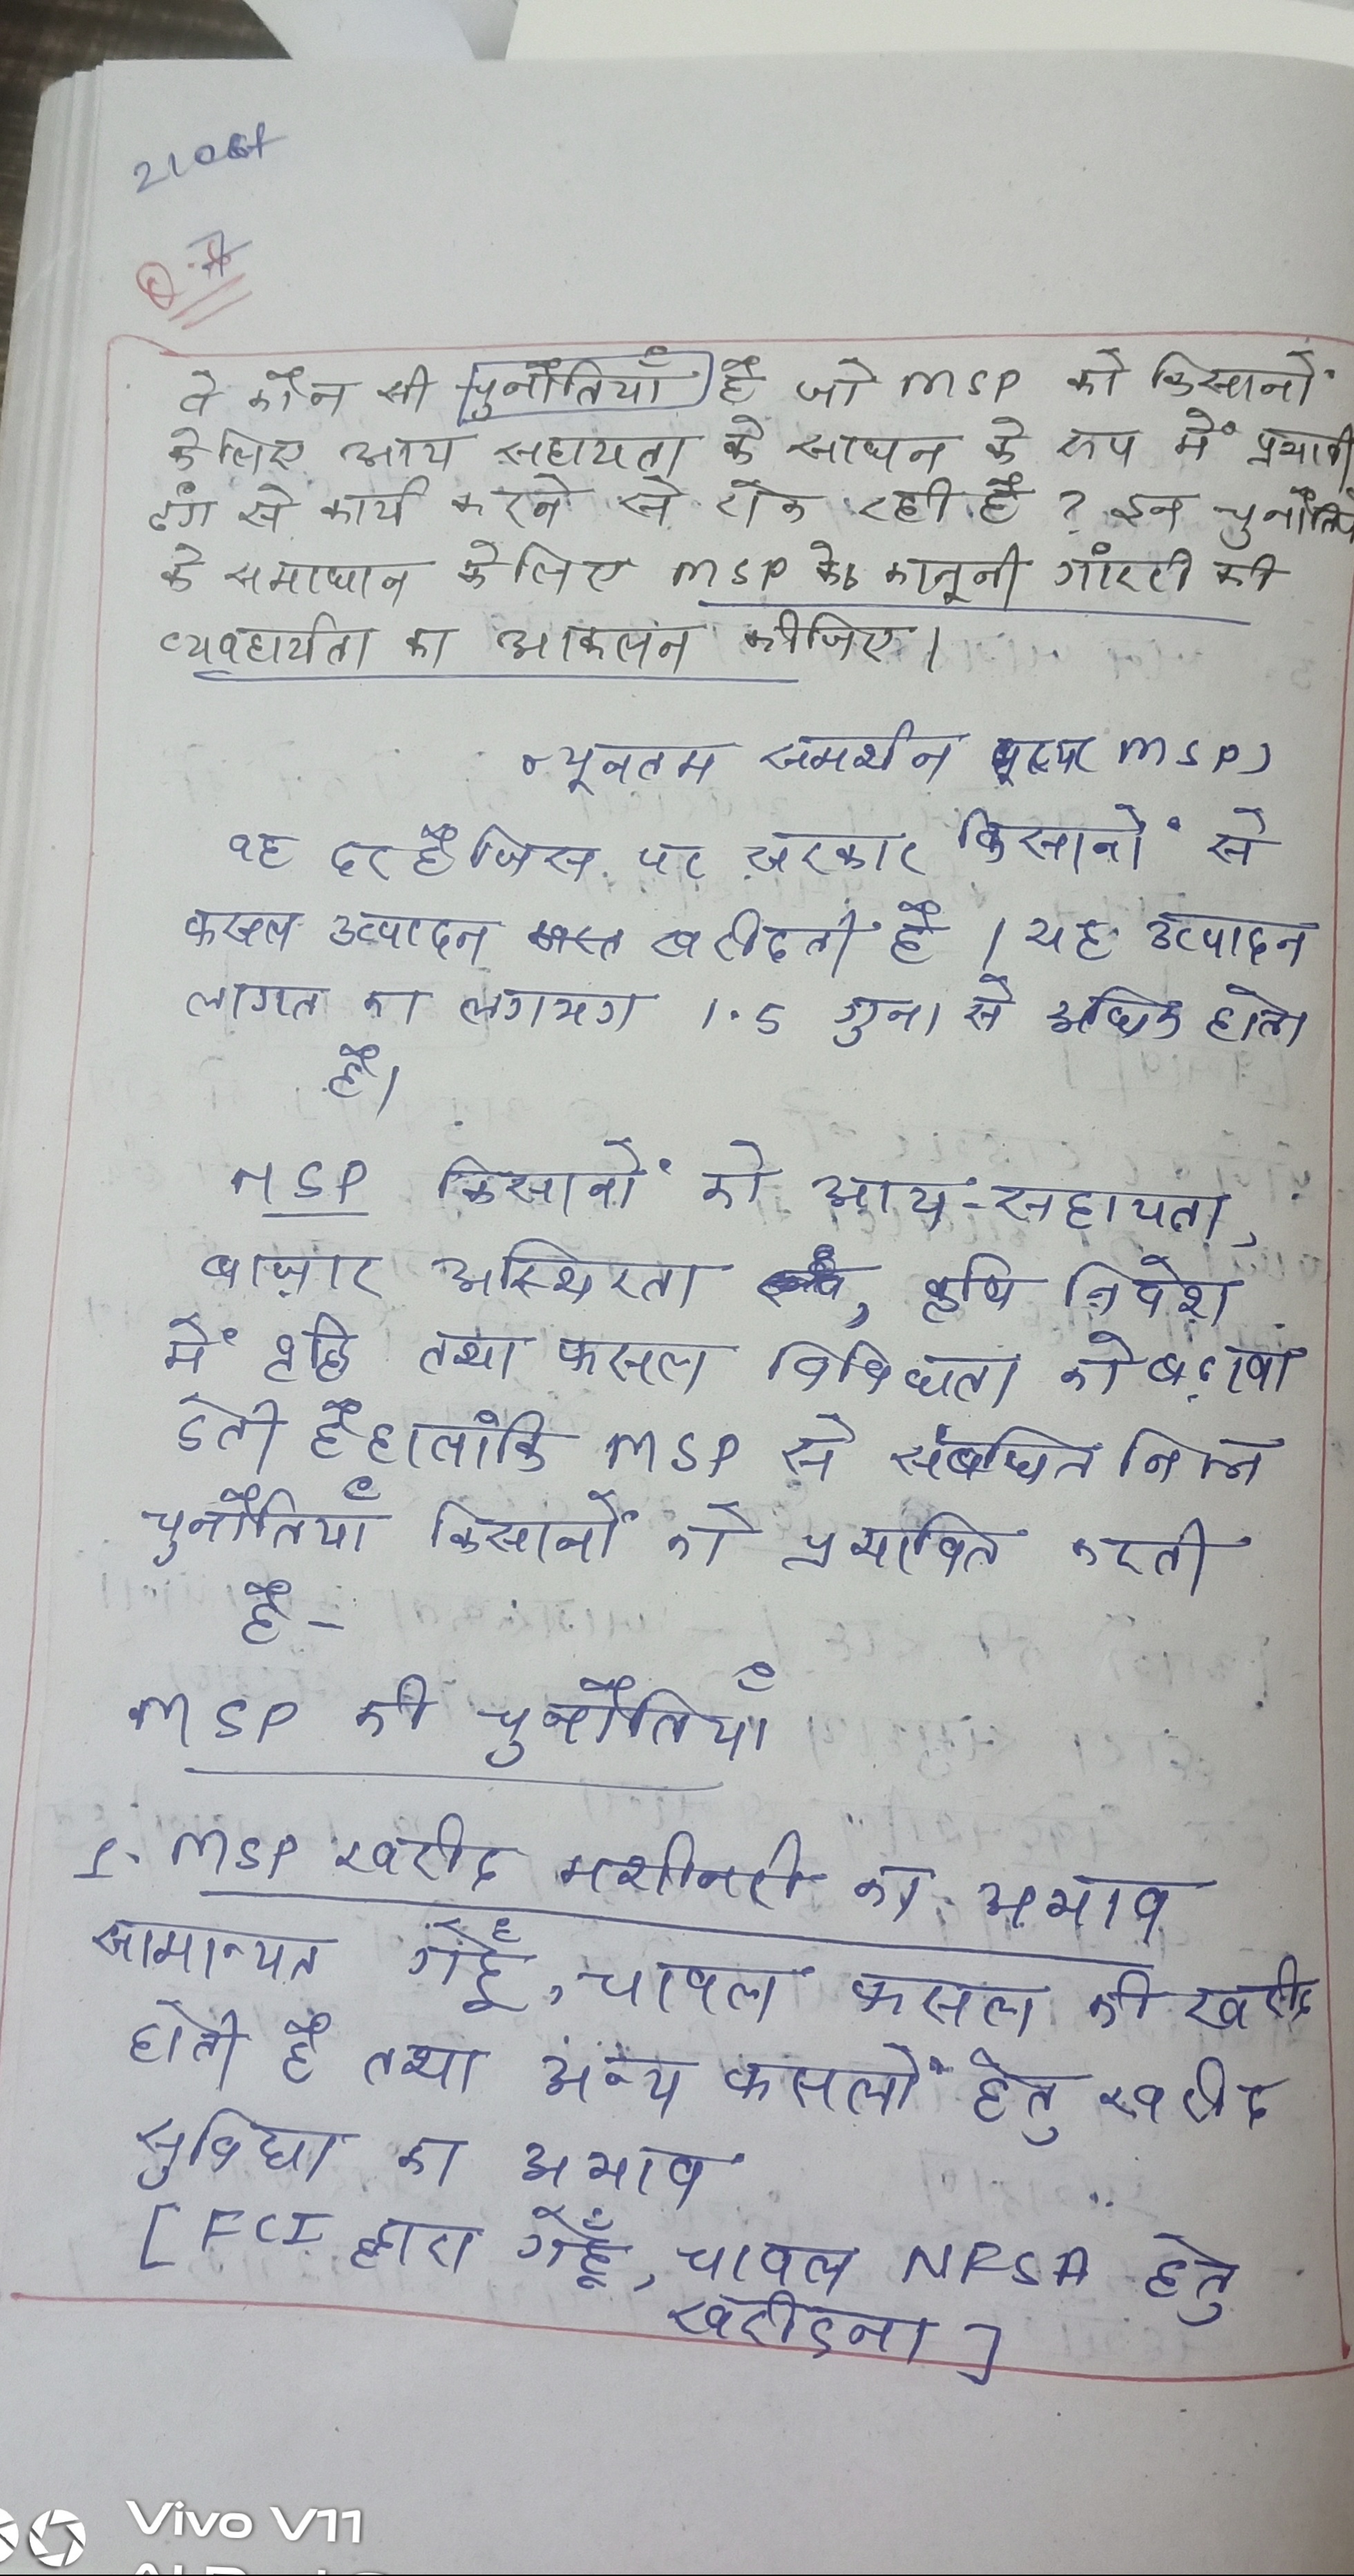 21 Oct
Q.7
वे कौन सी चुनौतियाँ है जो MSP को किसानों
के लिए आय सहायता के साधन के रूप में प्रभावी
ढंग से कार्य करने से रोक रही है ? इन चुनौतियों
के समाधान के लिए MSP के कानूनी गांरटी की
व्यवहार्यता का आकलन कीजिए।
न्यूनतम समर्थन मूल्य MSP)
वह दर है जिस पर सरकार किसानों से
फसल उत्पादन खरीदती है । यह उत्पादन
लागत का लगभग 1.5 गुना से अधिक होता
है।
MSP किसानों को आय-सहायता,
बाज़ार अस्थिरता , कृषि निवेश
में वृद्धि तथा फसल विविधता को बढ़ावा
देती है हालांकि MSP से संबधित निम्न
चुनौतियाँ किसानों को प्रभावित करती
है -
MSP की चुनौतियाँ
1. MSP खरीद मशीनरी का अभाव
सामान्यत गेहूँ, चावल फसल की खरीद
होती है तथा अन्य फसलों हेतु खरीद
सुविधा का अभाव
[ FCI द्वारा गेहूँ, चावल NFSA हेतु
खरीदना ]
Vivo V11